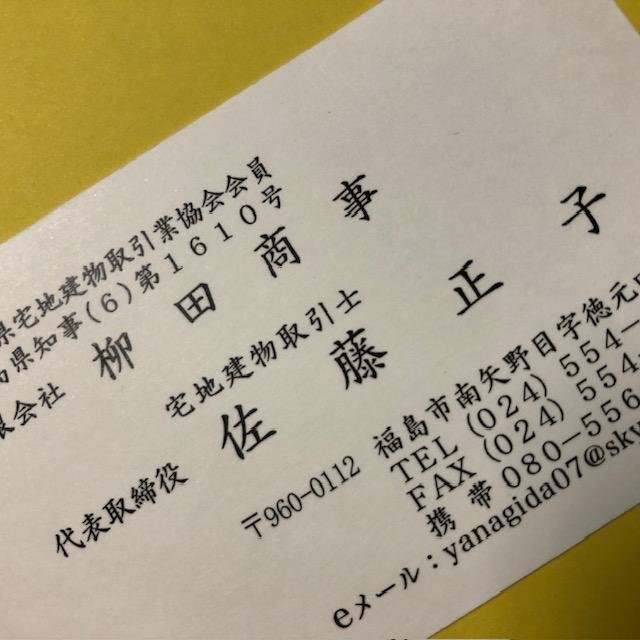 県宅地建物取引業協会会員
県知事(6)第1610号
限会社 柳田商事
宅地建物取引士
代表取締役 佐藤正子
〒960-0112 福島市南矢野目字徳元
TEL(024)554-
FAX(024)554-
携帯080-556
eメール:yanagida07@sky